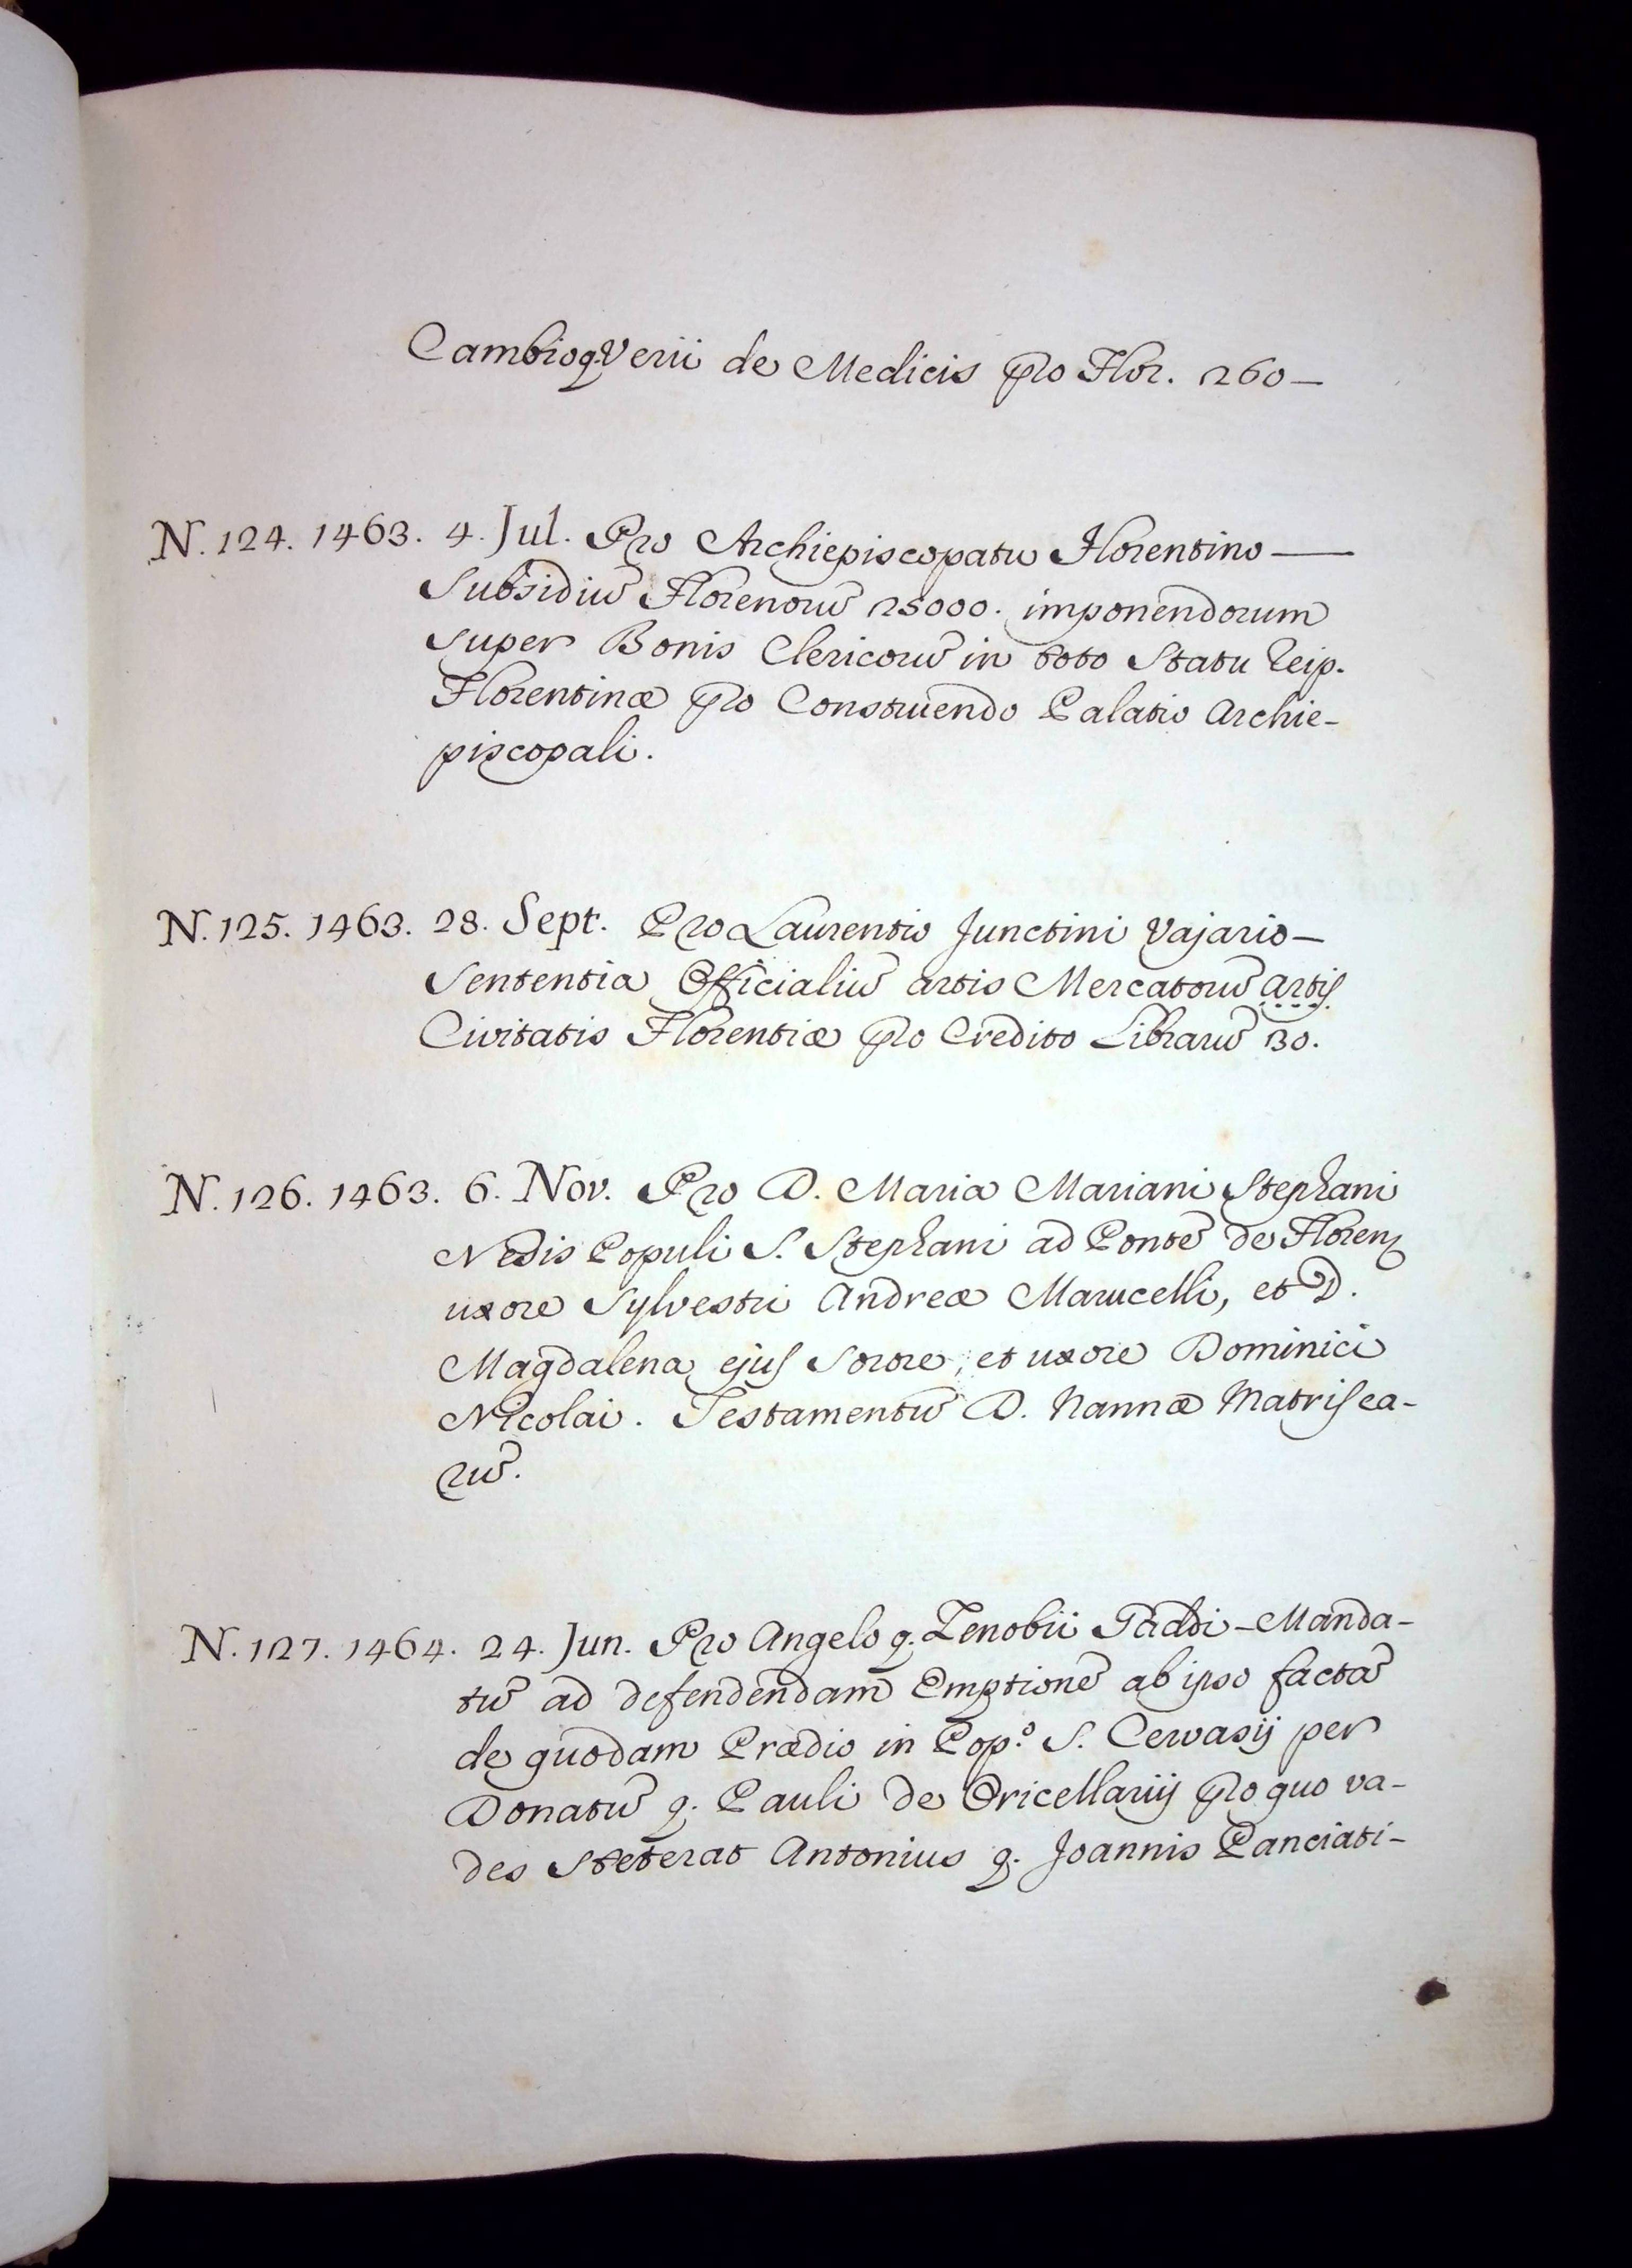 Cambio q. Verii de Medicis pro Flor. 260 —
N. 124. 1463. 4. Jul. Pro Archiepiscopatu Florentino —
Subsidiū Florenorū 25000. imponendorum
super Bonis Clericorū in toto Statu Reip.
Florentinæ pro Construendo Palatio Archie-
piscopali.
N. 125. 1463. 28. Sept. Pro Laurentio Junctini Vajario —
Sententia Officialiū artis Mercatorū artis
Civitatis Florentiæ pro Credito Librarū 30.
N. 126. 1463. 6. Nov. Pro D. Maria Mariani Stephani
Nesis Populi S. Stephani ad Pontē de Floren.
uxore Sylvestri Andreæ Marucelli, et D.
Magdalena ejus Sorore, et uxore Dominici
Nicolai. Testamentū D. Nannæ Matris ea-
rū.
N. 127. 1464. 24. Jun. Pro Angelo q. Zenobii Taddi - Manda-
tū ad defendendam Emptionē ab ipso factā
de quodam Prædio in Pop.º S. Cervasij per
Donatū q. Pauli de Oricellarijs pro quo va-
des steterat Antonius q. Joannis Panciati-